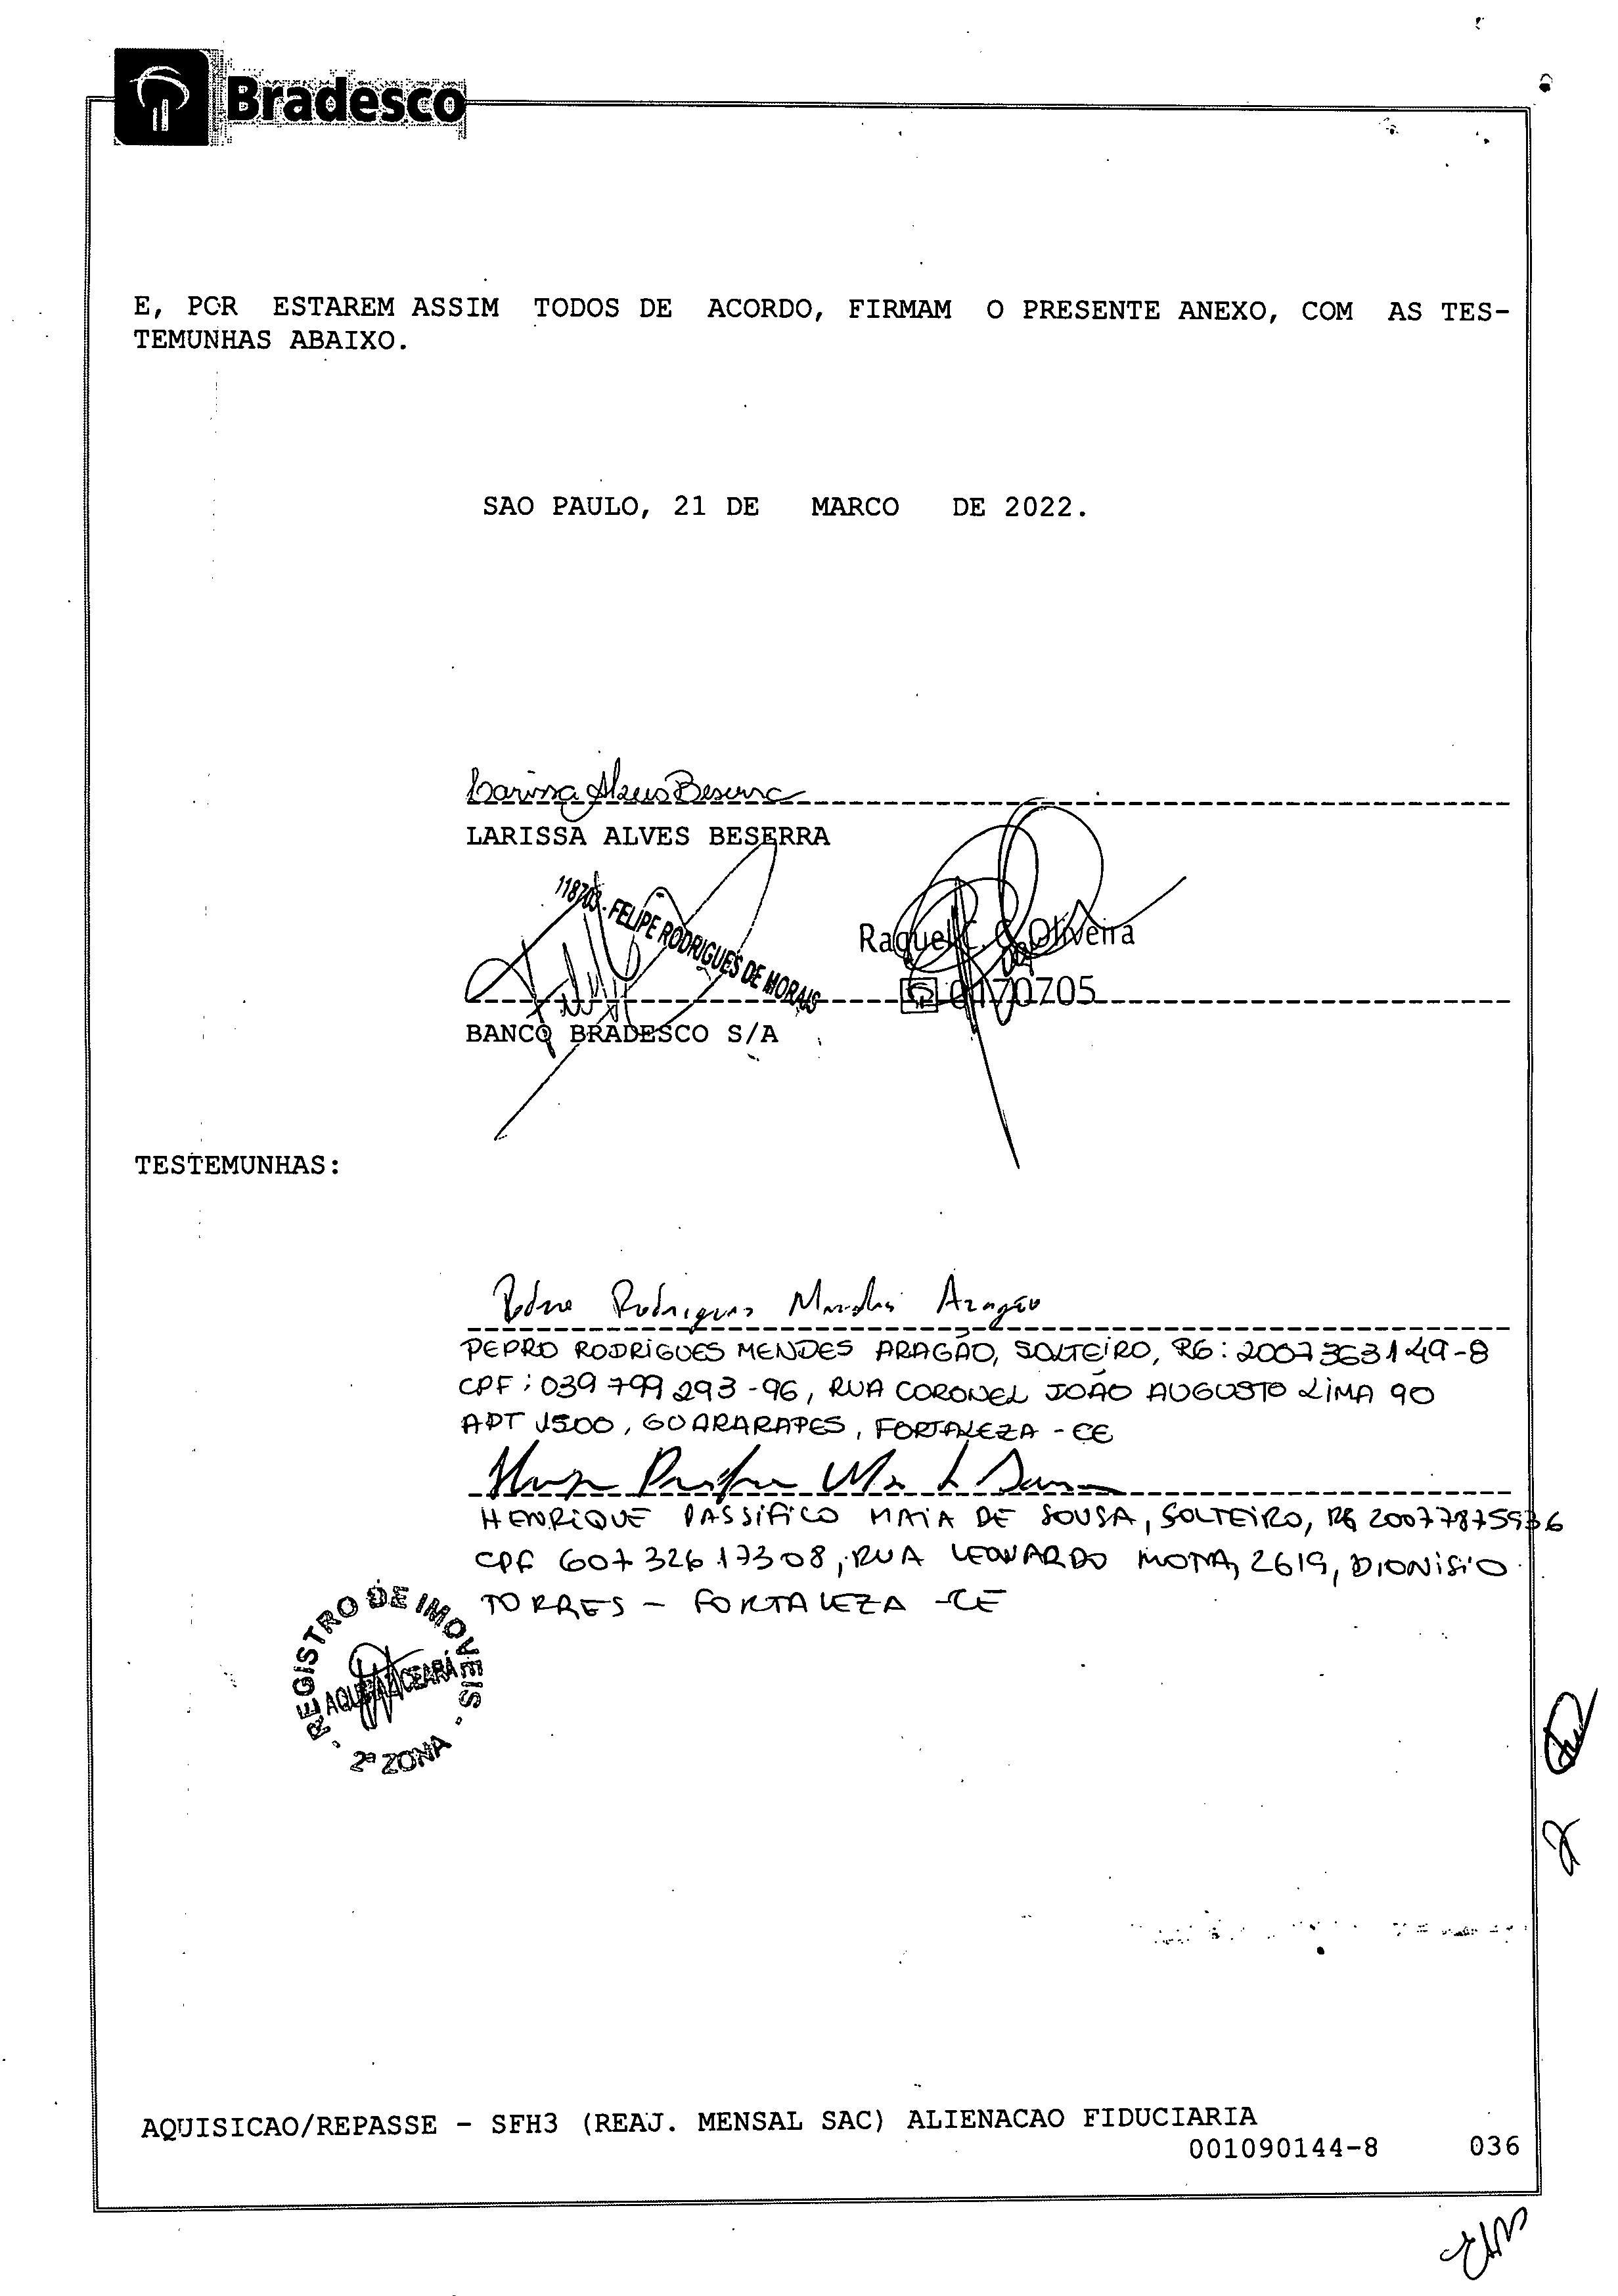 Bradesco
E, POR ESTAREM ASSIM TODOS DE ACORDO, FIRMAM O PRESENTE ANEXO, COM AS TES-
TEMUNHAS ABAIXO.
SAO PAULO, 21 DE MARCO DE 2022.
Larissa Alves Beserra
LARISSA ALVES BESERRA
118703 - FELIPE RODRIGUES DE MORAIS
Raquel C. C. Oliveira
0170705
BANCO BRADESCO S/A
TESTEMUNHAS:
Pedro Rodrigues Mendes Aragão
PEDRO RODRIGUES MENDES ARAGÃO, SOLTEIRO, RG: 2007363149-8
CPF: 039 799 293-96, RUA CORONEL JOÃO AUGUSTO LIMA 90
APT 1500, GUARARAPES, FORTALEZA - CE
HENRIQUE PASSIFICO MAIA DE SOUSA, SOLTEIRO, RG 20077875936
CPF 607 326 173 08, RUA LEONARDO MOTA, 2619, DIONISIO
TORRES - FORTALEZA - CE
REGISTRO DE IMOVEIS
AQUIRAZ CEARÁ
2ª ZONA
AQUISICAO/REPASSE - SFH3 (REAJ. MENSAL SAC) ALIENACAO FIDUCIARIA
001090144-8 036